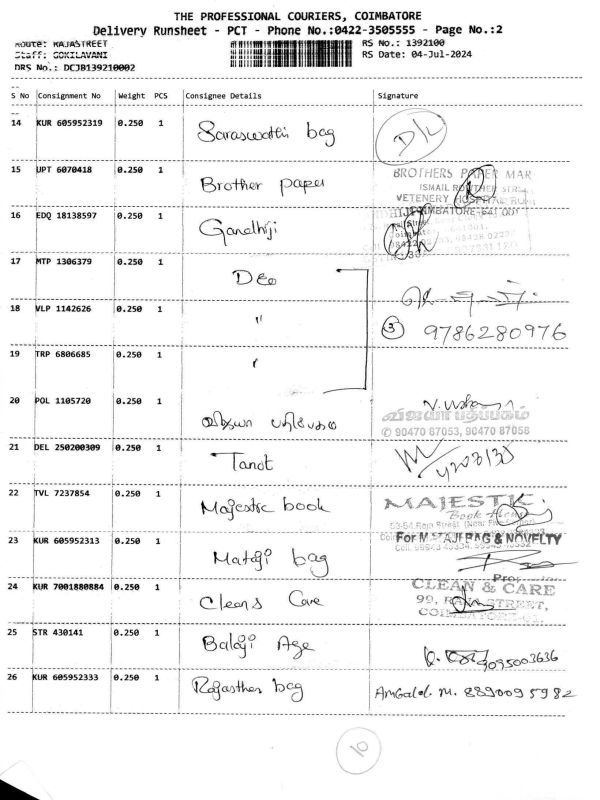 THE PROFESSIONAL COURIERS, COIMBATORE
Delivery Runsheet - PCT - Phone No.:0422-3505555 - Page No.:2
Route: RAJASTREET RS No.: 1392100
Staff: GOKILAVANI RS Date: 04-Jul-2024
DRS No.: DCJB139210002
S No Consignment No Weight PCS Consignee Details Signature
14 KUR 605952319 0.250 1 Saraswathi bag D/L
15 UPT 6070418 0.250 1 Brother paper
BROTHERS PAPER MAR
ISMAIL ROWTHER STREET
VETENERY HOSPITAL
COIMBATORE-641 001
16 EDQ 18138597 0.250 1 Gandhiji
17 MTP 1306379 0.250 1 Deo
18 VLP 1142626 0.250 1 " 3 9786280976
19 TRP 6806685 0.250 1 "
20 POL 1105720 0.250 1 விஜயா பதிப்பகம்
விஜயா பதிப்பகம்
✆ 90470 87053, 90470 87058
21 DEL 250200309 0.250 1 Tanot
22 TVL 7237854 0.250 1 Majestic book
MAJESTIC
Book House
53-54, Raja Street
23 KUR 605952313 0.250 1 Mataji bag
For MATAJI BAG & NOVELTY
Prop
24 KUR 7001880884 0.250 1 Cleans Care
CLEAN & CARE
99, RAJA STREET,
COIMBATORE-01.
25 STR 430141 0.250 1 Balaji Age 9095003636
26 KUR 605952333 0.250 1 Rajasthan bag Amgalal. M. 8890095982
10